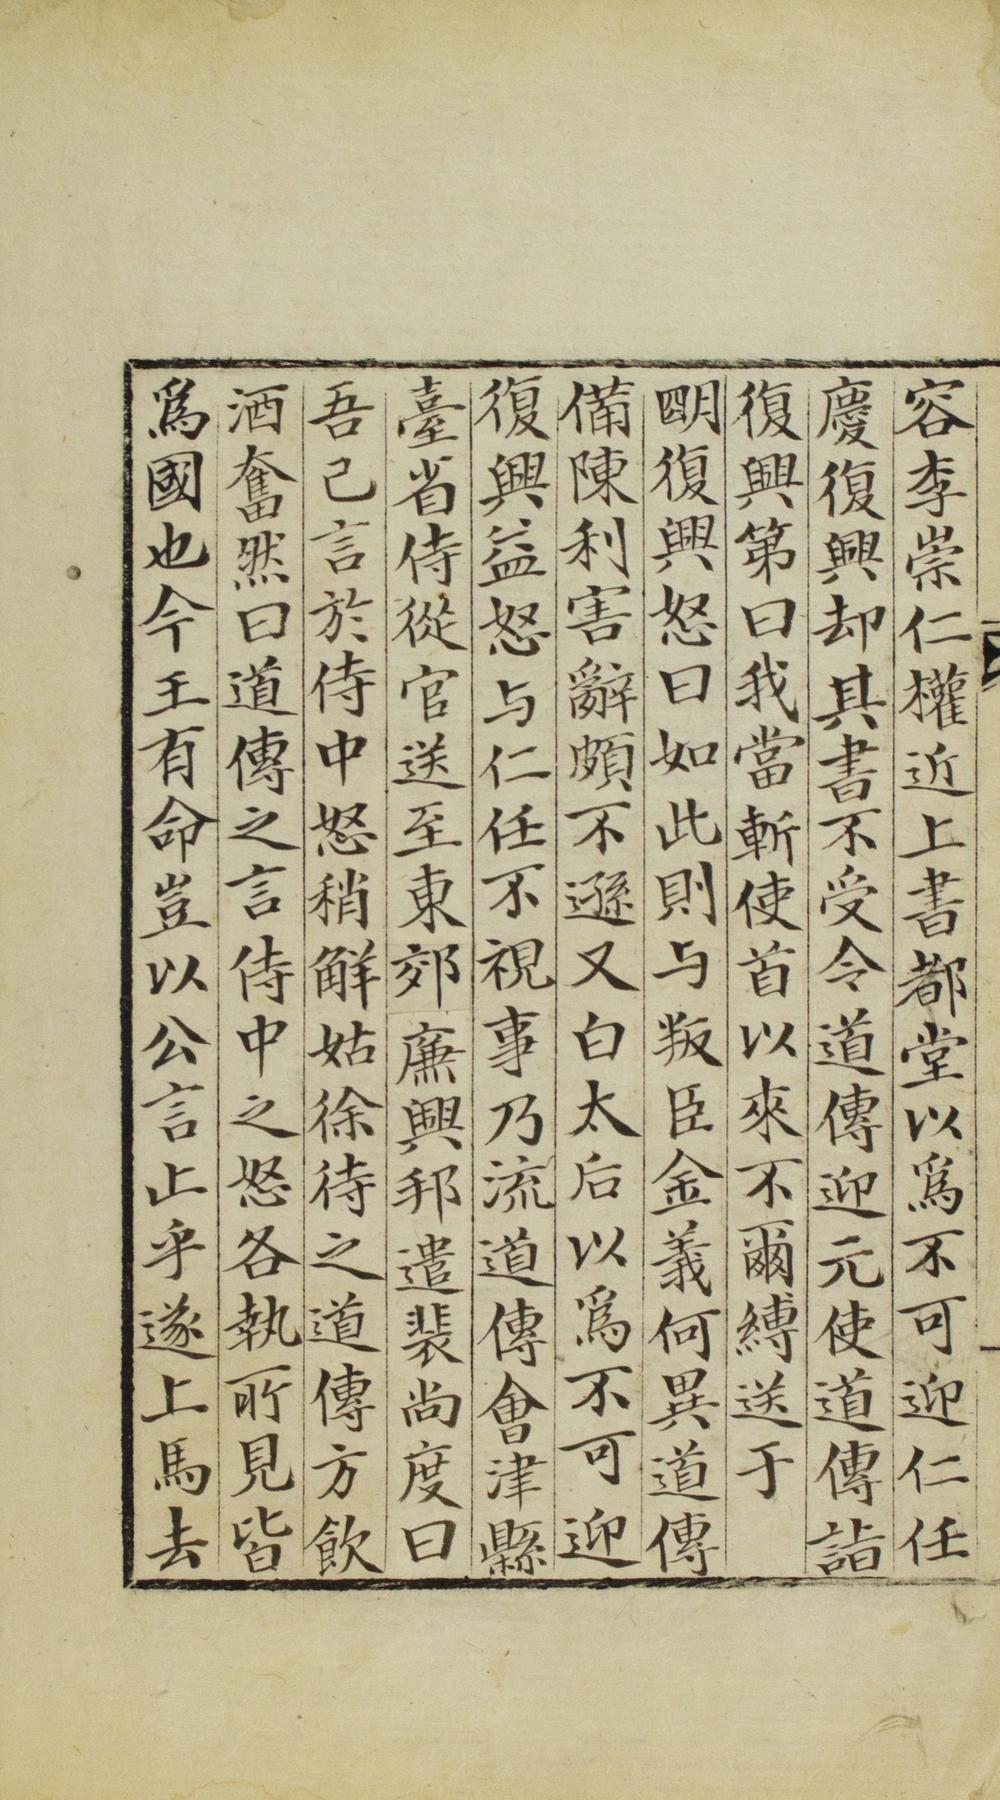 容李崇仁權近上書都堂以爲不可迎仁任
慶復興却其書不受令道傳迎元使道傳詣
復興第曰我當斬使首以來不爾縛送于
明復興怒曰如此則与叛臣金義何異道傳
備陳利害辭頗不遜又白太后以爲不可迎
復興益怒与仁任不視事乃流道傳會津縣
臺省侍從官送至東郊廉興邦遣裴尚度曰
吾已言於侍中怒稍解姑徐待之道傳方飲
酒奮然曰道傳之言侍中之怒各執所見皆
爲國也今王有命豈以公言止乎遂上馬去